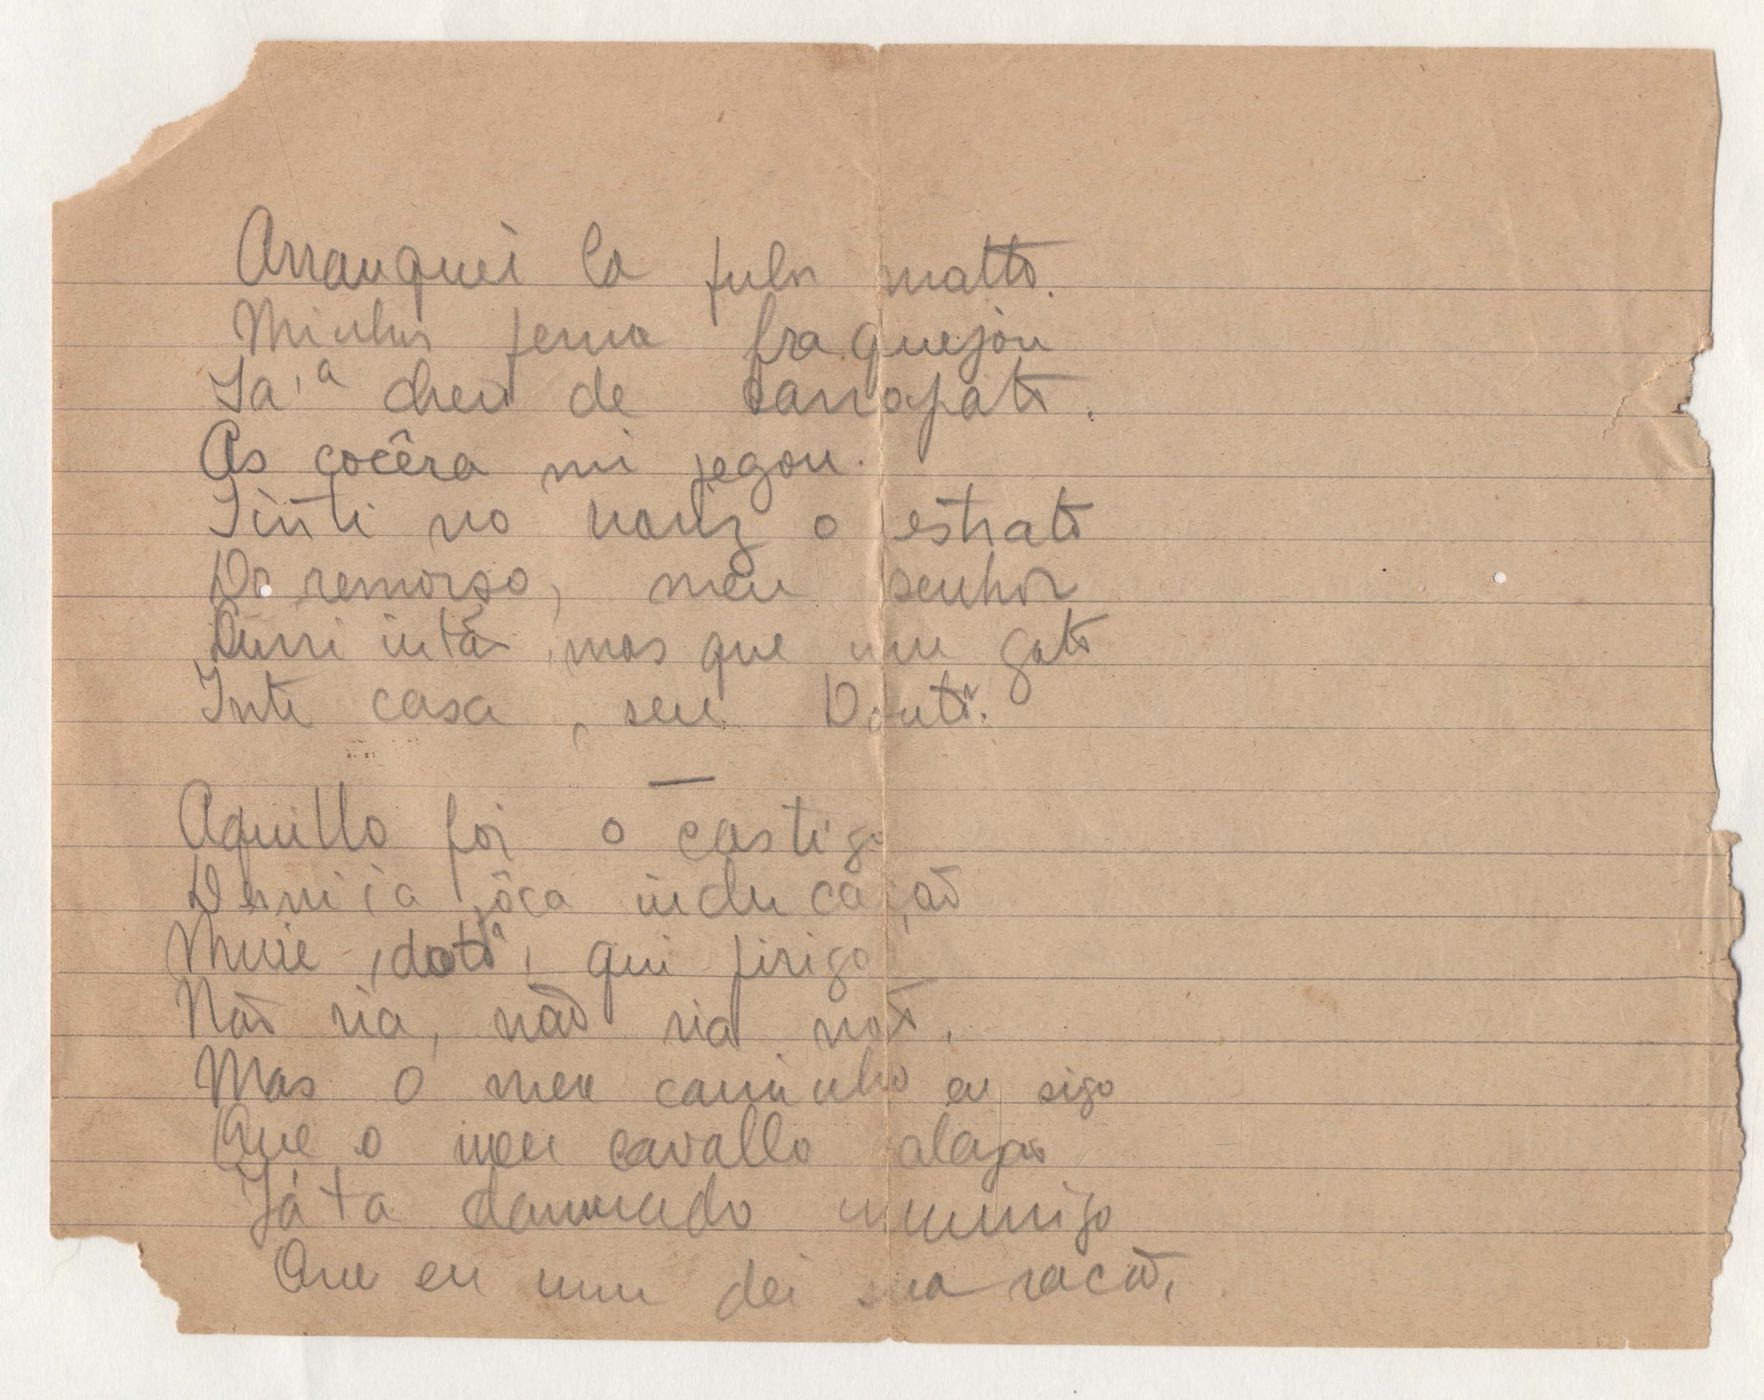 Arranquei lá pulos matto.
Minhas perna fraquejou
Ia, a cheio de carrapato.
As cocêra mi pegou.
Sinti no nariz o estrato
Do remorso, meu senhor
Curri intão, mas que um gato
Inté casa, seu Doutô.
—
Aquillo foi o castigo
De minia pôca inducação
Muié, dotô, qui pirigo
Não ria, não ria não,
Mas o meu caminho eu sigo
Que o meu cavallo alazão
Já tá damnado cummigo
Que eu num dei sua ração,